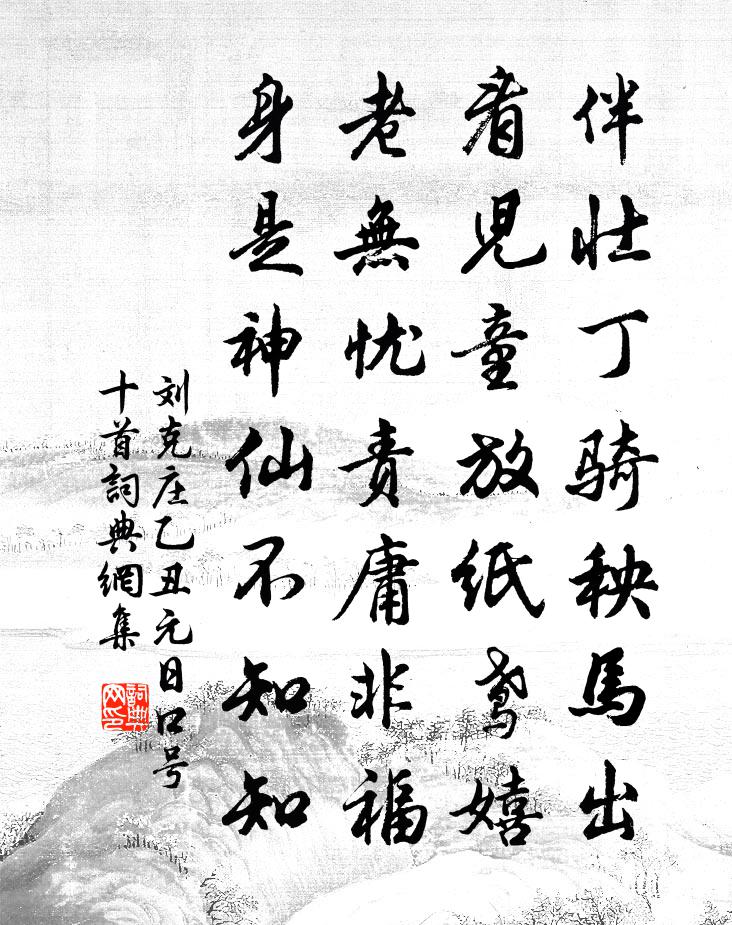 伴壮丁骑秧馬出
看兒童放紙鸢嬉
老無忧责庸非福
身是神仙不知知
刘克庄乙丑元日口号
十首詞典網集
詞典网印